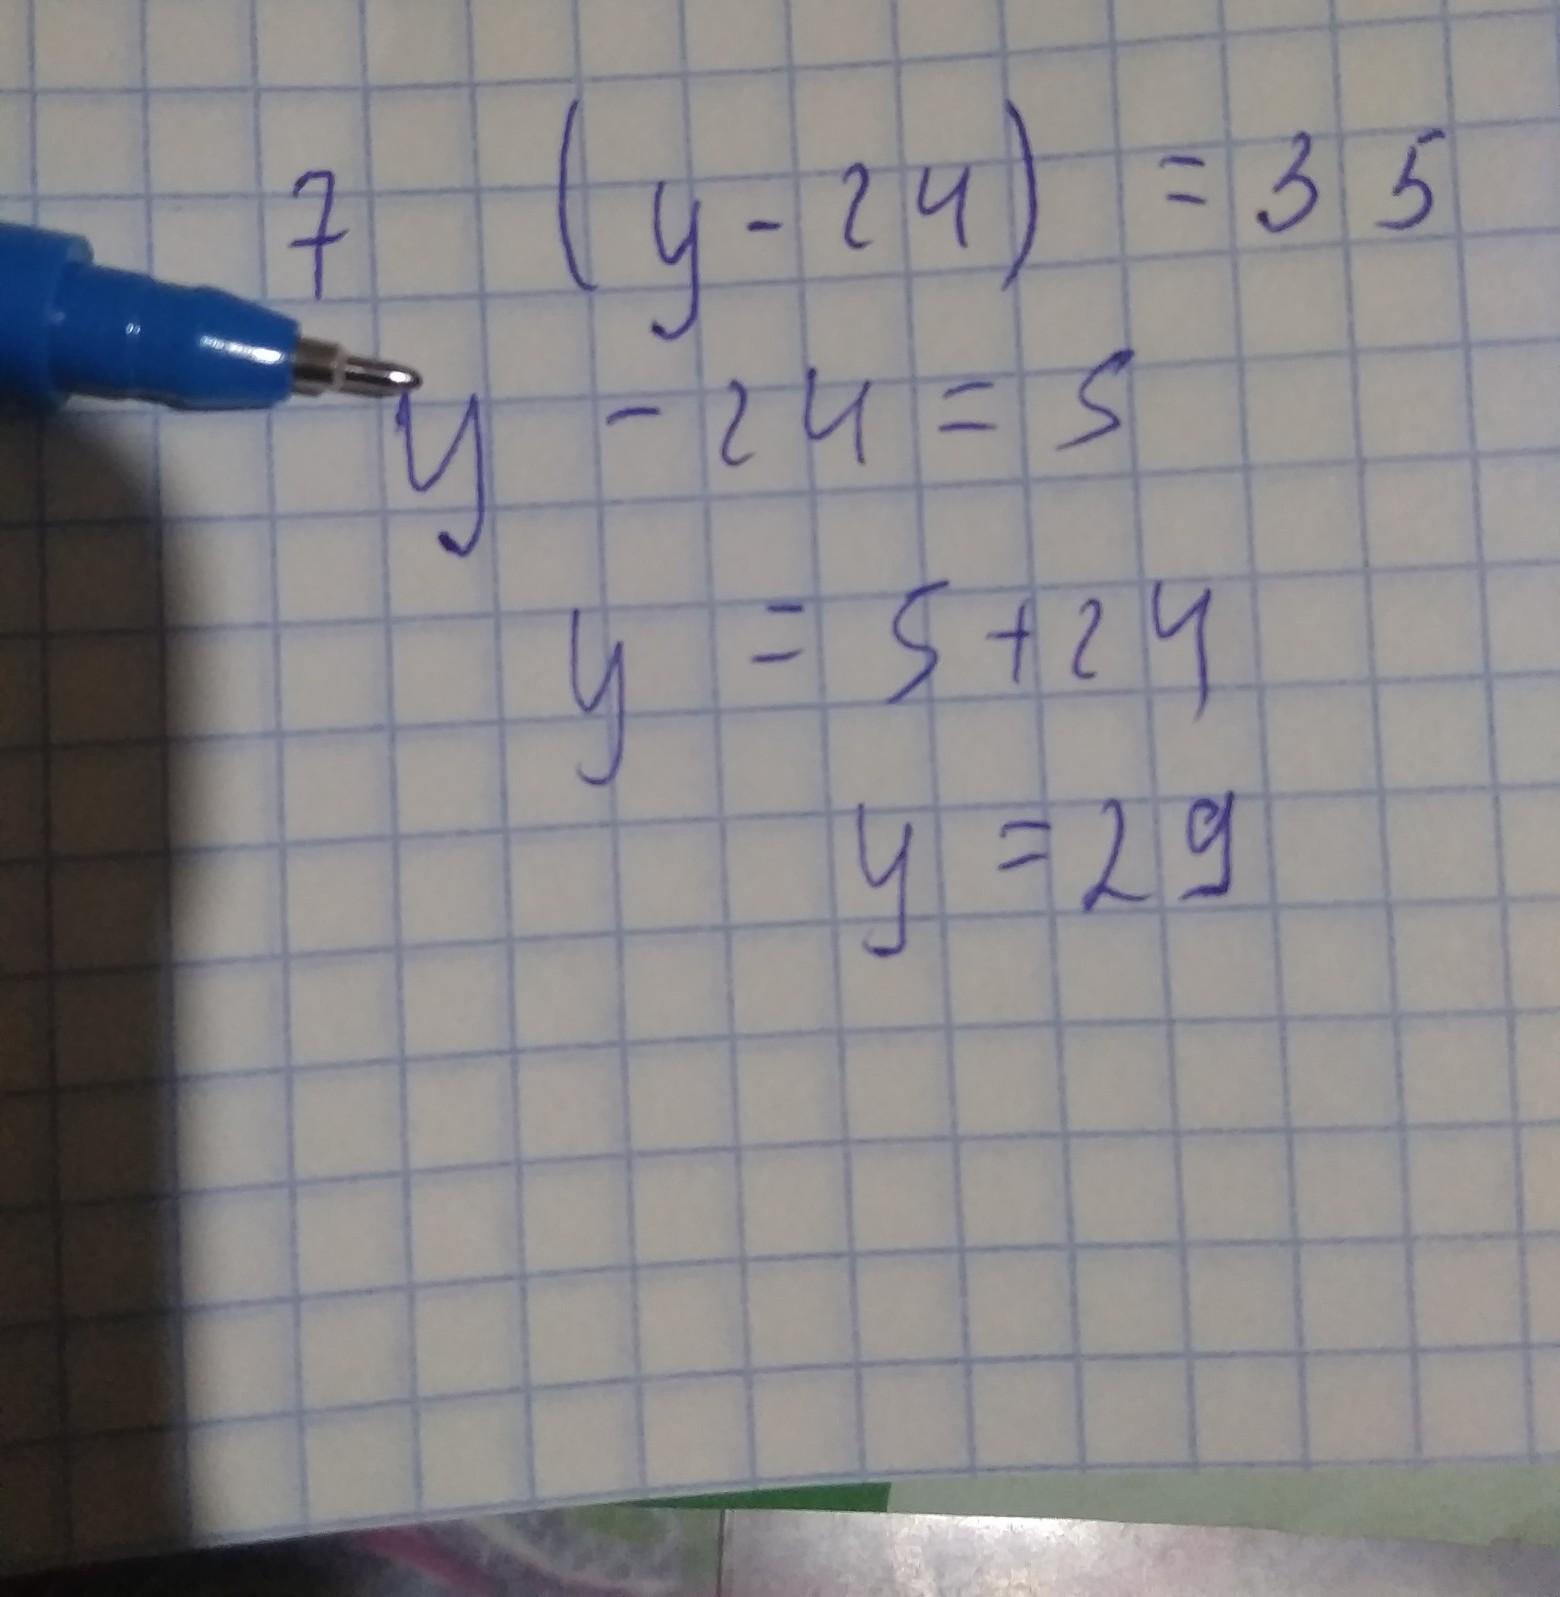 7 (y - 24) = 35
y - 24 = 5
y = 5 + 24
y = 29